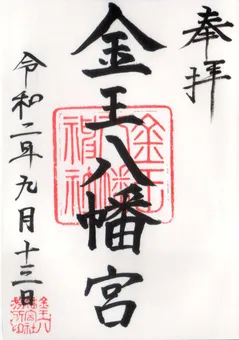 奉拝
金王八幡宮
令和二年九月十三日